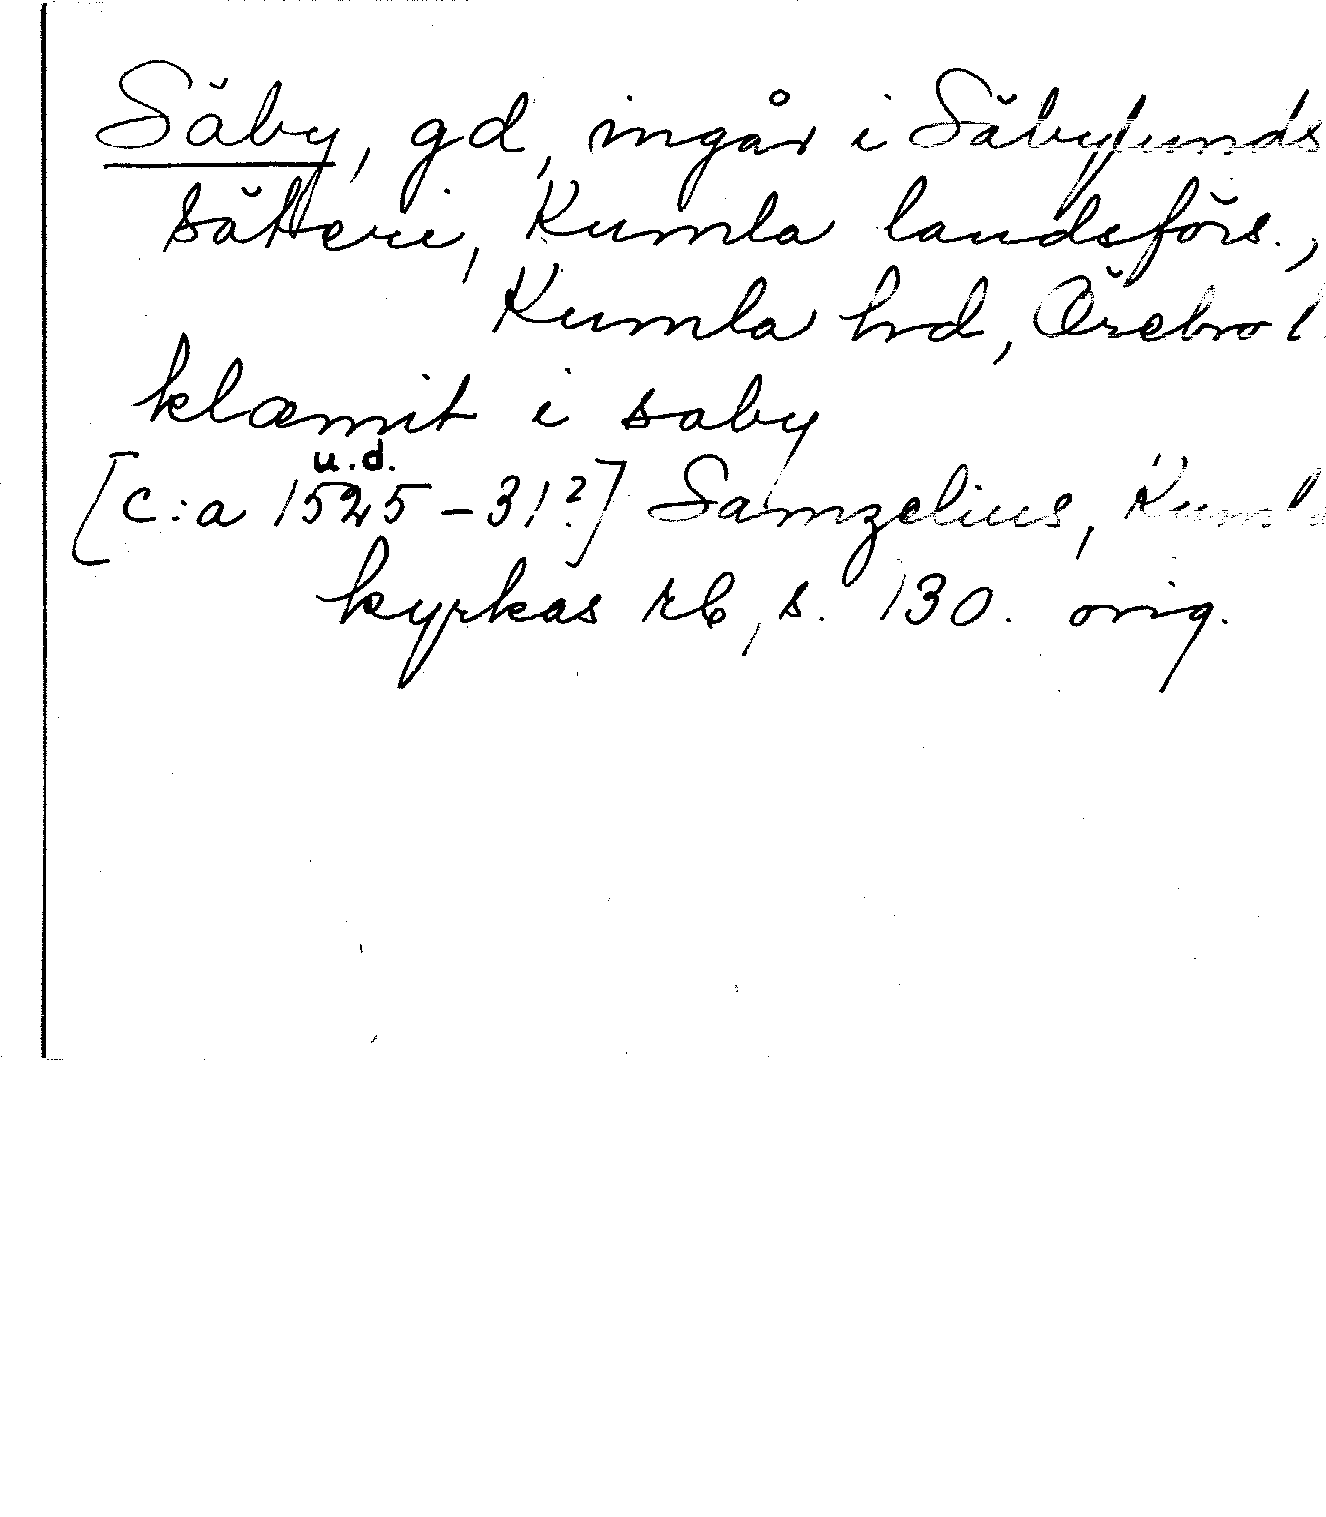 Säby, gd, ingår i Säbylunds
säteri, Kumla landsförs.,
Kumla hrd, Örebro l
klæmit i saby
u.d.
[c:a 1525-31?] Samzelius, Kumla
kyrkas rb, s. 130. orig.